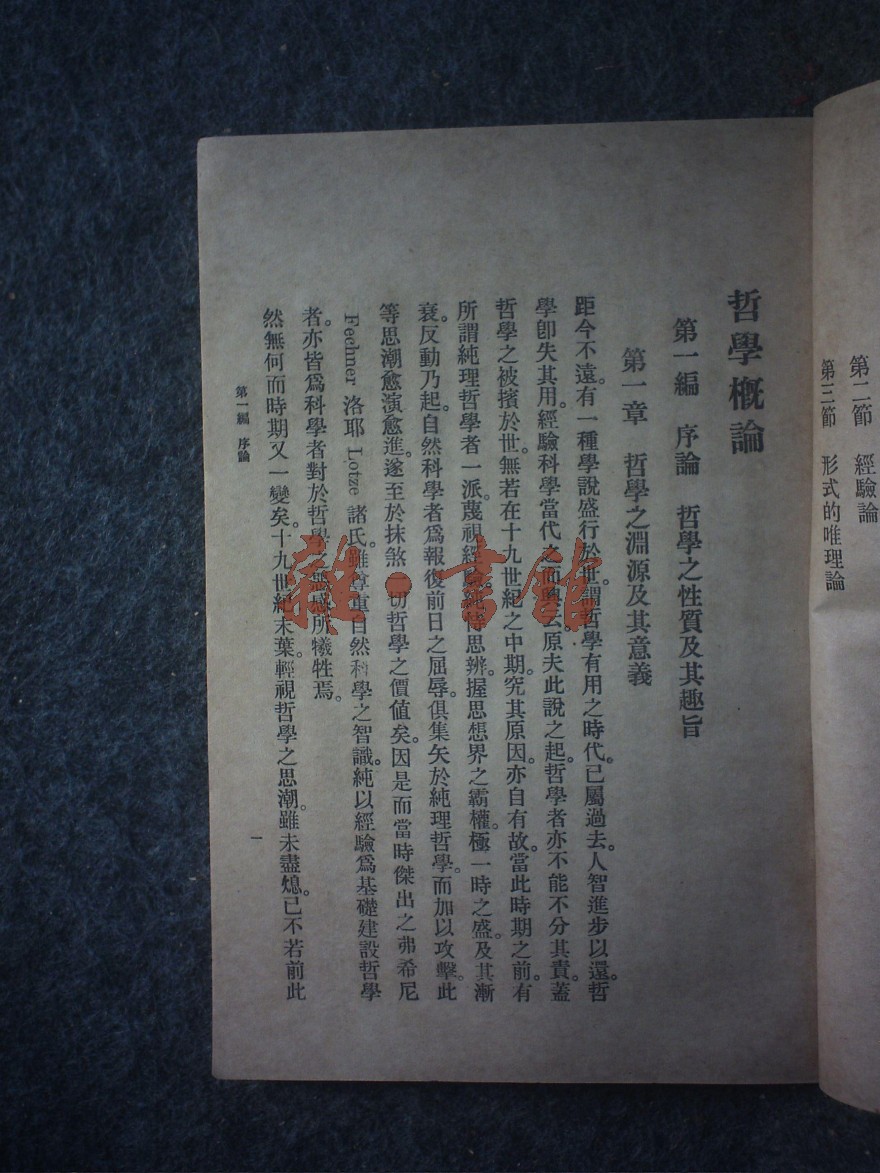 第二節　經驗論
第三節　形式的唯理論
哲學概論
第一編　序論　哲學之性質及其趣旨
第一章　哲學之淵源及其意義
距今不遠。有一種學說盛行於世。謂哲學有用之時代。已屬過去。人智進步以還。哲
學卽失其用。經驗科學當代之而興云。原夫此說之起。哲學者亦不能不分其責。蓋
哲學之被擯於世。無若在十九世紀之中期。究其原因。亦自有故。當此時期之前。有
所謂純理哲學者一派。蔑視經驗。純恃思辨。握思想界之霸權。極一時之盛。及其漸
衰。反動乃起。自然科學者爲報復前日之屈辱。俱集矢於純理哲學。而加以攻擊。此
等思潮愈演愈進。遂至於抹煞一切哲學之價値矣。因是而當時傑出之弗希尼
Fechner 洛耶 Lotze 諸氏。雖尊重自然科學之智識。純以經驗爲基礎建設哲學
者。亦皆爲科學者對於哲學之惡感所犧牲焉。
然無何而時期又一變矣。十九世紀末葉。輕視哲學之思潮。雖未盡熄。已不若前此
第一編　序論
一
雜·書館